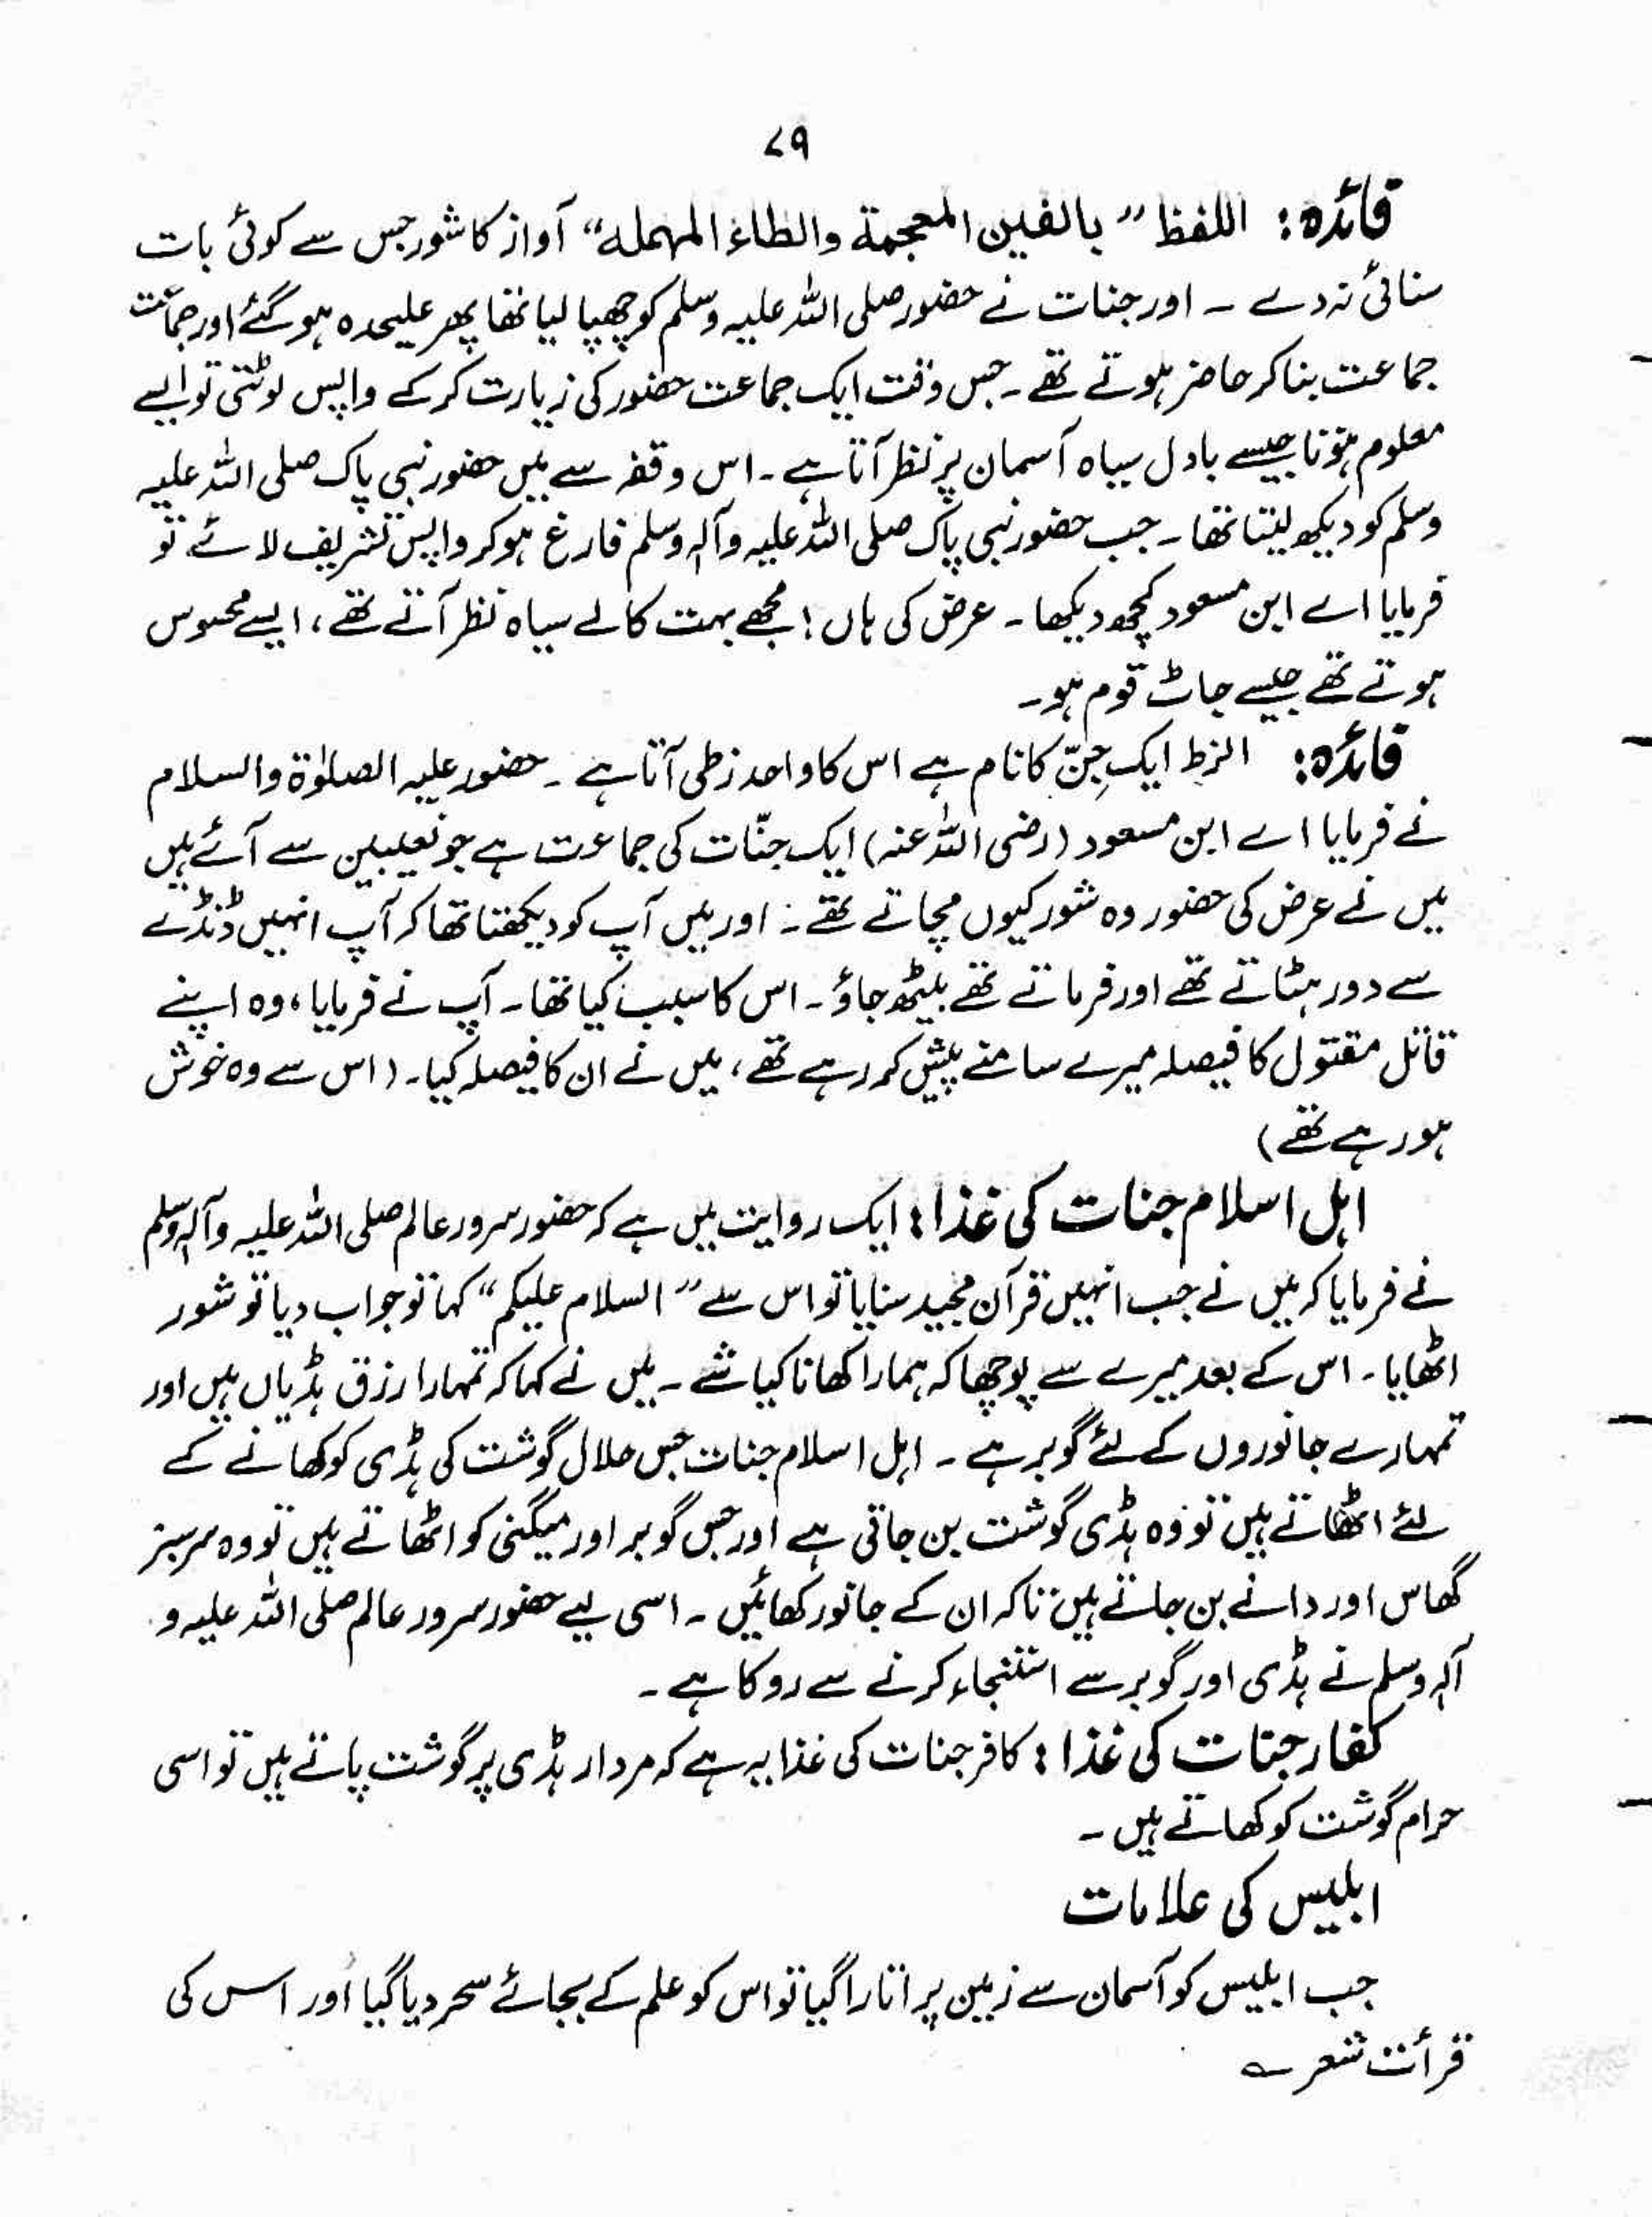 ۷۹
فائدہ: اللفظ ”بالغین المعجمۃ والطاء المہملہ“ آواز کا شور جس سے کوئی بات
سنائی نہ دے ۔ اور جنات نے حضور صلی اللہ علیہ وسلم کو چھپا لیا تھا پھر علیحدہ ہو گئے اور جماعت
جماعت بنا کر حاضر ہوتے تھے ۔ جس وقت ایک جماعت حضور کی زیارت کر کے واپس لوٹتی تو ایسے
معلوم ہوتا جیسے بادل سیاہ آسمان پر نظر آتا ہے ۔ اس وقفہ سے میں حضور نبی پاک صلی اللہ علیہ
وسلم کو دیکھ لیتا تھا ۔ جب حضور نبی پاک صلی اللہ علیہ وآلہ وسلم فارغ ہو کر واپس تشریف لائے تو
فرمایا اے ابن مسعود کچھ دیکھا ۔ عرض کی ہاں ! مجھے بہت کالے سیاہ نظر آتے تھے ، ایسے محسوس
ہوتے تھے جیسے جاٹ قوم ہو ۔
فائدہ: الزط ایک جِنّ کا نام ہے اس کا واحد زطی آتا ہے ۔ حضور علیہ الصلوٰۃ والسلام
نے فرمایا اے ابن مسعود (رضی اللہ عنہ) ایک جنّات کی جماعت ہے جو نعیبین سے آئے ہیں
میں نے عرض کی حضور وہ شور کیوں مچاتے تھے ۔ اور میں آپ کو دیکھتا تھا کہ آپ انہیں ڈنڈے
سے دور ہٹاتے تھے اور فرماتے تھے بیٹھ جاؤ ۔ اس کا سبب کیا تھا ۔ آپ نے فرمایا ، وہ اپنے
قاتل مقتول کا فیصلہ میرے سامنے پیش کر رہے تھے ، میں نے ان کا فیصلہ کیا ۔ (اس سے وہ خوش
ہو رہے تھے)
اہل اسلام جنات کی غذا: ایک روایت میں ہے کہ حضور سرور عالم صلی اللہ علیہ وآلہ وسلم
نے فرمایا کہ میں نے جب انہیں قرآن مجید سنایا تو اس سے ”السلام علیکم“ کہا تو جواب دیا تو شور
اٹھایا ۔ اس کے بعد میرے سے پوچھا کہ ہمارا کھانا کیا شے ۔ میں نے کہا کہ تمہارا رزق ہڈیاں ہیں اور
تمہارے جانوروں کے لئے گوبر ہے ۔ اہل اسلام جنات جس حلال گوشت کی ہڈی کو کھانے کے
لئے اٹھاتے ہیں تو وہ ہڈی گوشت بن جاتی ہے اور جس گوبر اور میگنی کو اٹھاتے ہیں تو وہ سرسبز
گھاس اور دانے بن جاتے ہیں تاکہ ان کے جانور کھائیں ۔ اسی لیے حضور سرور عالم صلی اللہ علیہ و
آلہ وسلم نے ہڈی اور گوبر سے استنجاء کرنے سے روکا ہے ۔
کفار جنات کی غذا: کافر جنات کی غذا یہ ہے کہ مردار ہڈی پر گوشت پاتے ہیں تو اسی
حرام گوشت کو کھاتے ہیں ۔
ابلیس کی علامات
جب ابلیس کو آسمان سے زمین پر اتارا گیا تو اس کو علم کے بجائے سحر دیا گیا اور اس کی
قرأت شعر ؎